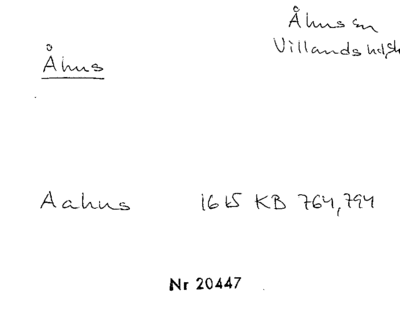 Åhus sn
Villands hd, Sk
Åhus
Aahus 1615 KB 764, 794
Nr 20447